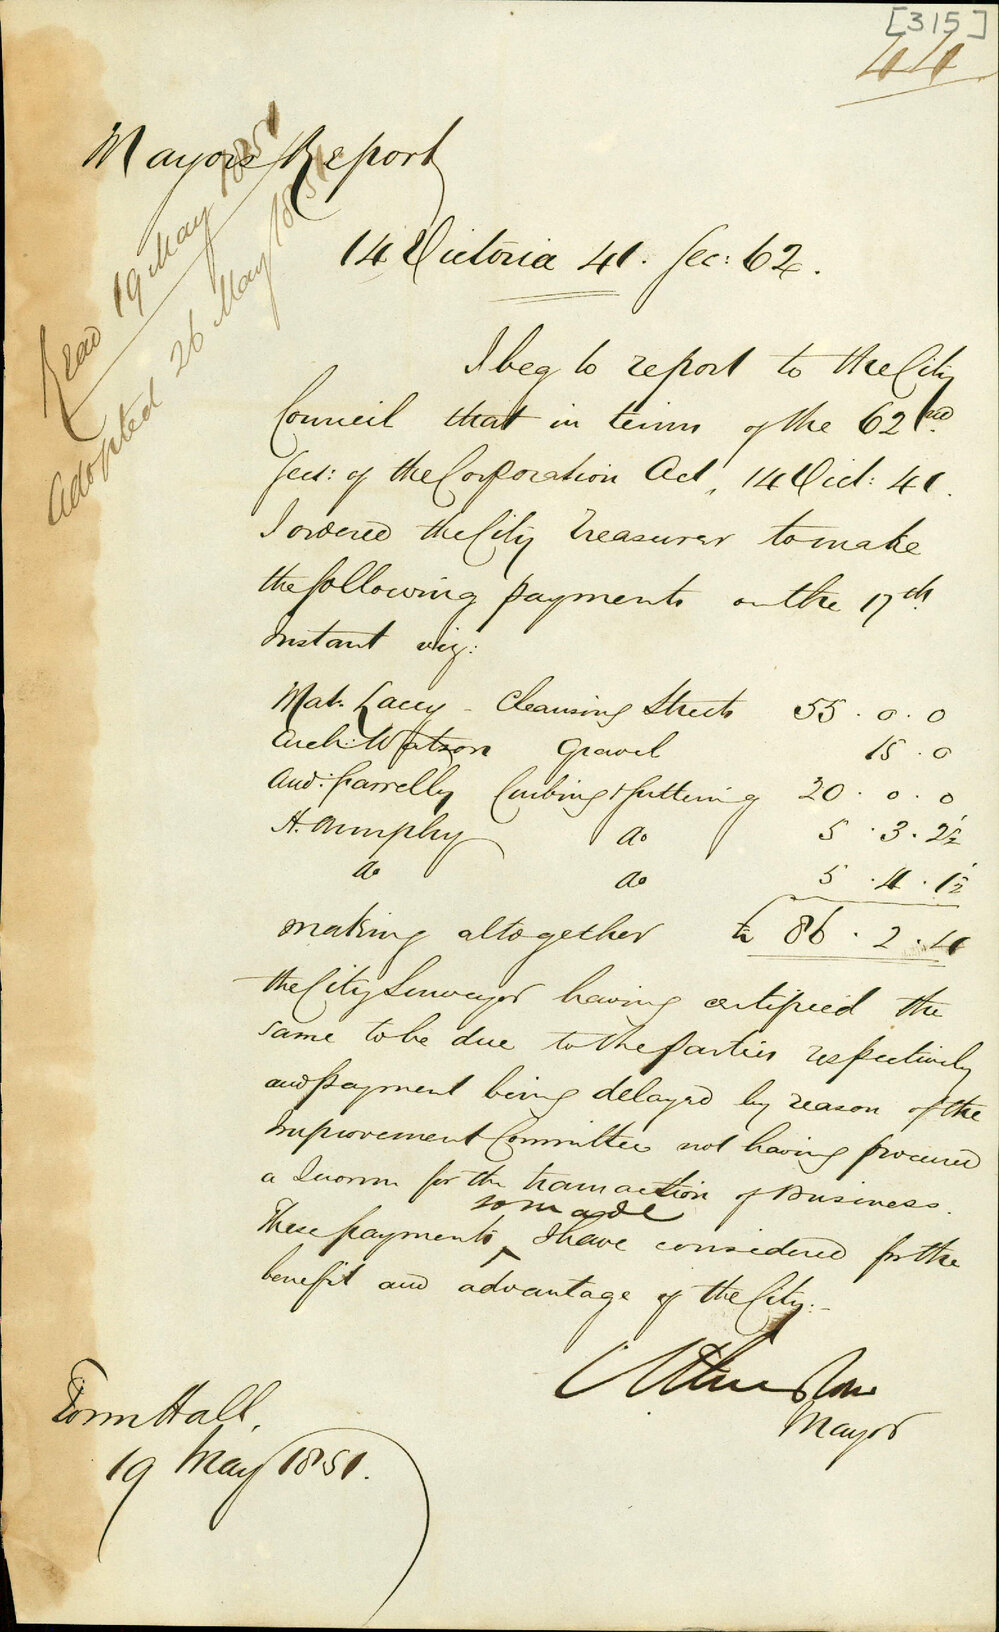 [315]
44
Mayors Report
Read 19 May 1851
Adopted 26 May 1851
14 Victoria 41. Sec: 62.
I beg to report to the City
Council that in terms of the 62nd
Sect: of the Corporation Act, 14 Vict: 41.
I ordered the City Treasurer to make
the following payments on the 17th
Instant viz:
Mat. Lacey - Cleansing Streets 55 . 0 . 0
Arch: Watson Gravel 15 . 0
And: Farrelly Curbing & Guttering 20 . 0 . 0
H. Dumphy do 5 . 3 . 2½
do do 5 . 4 . 1½
making altogether £ 86 . 2 . 4
the City Surveyor having certified the
same to be due to the parties respectively
and payment being delayed by reason of the
Improvement Committee not having procured
a Quorum for the transaction of Business.
These payments so made I have considered for the
benefit and advantage of the City:-
Mayor
Town Hall,
19 May 1851.